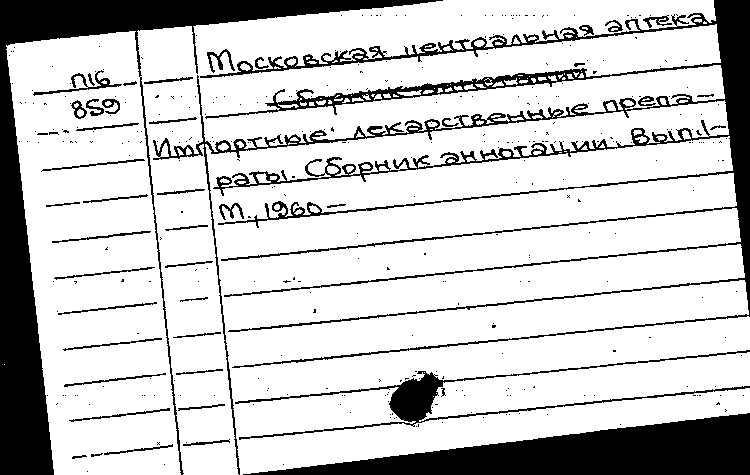 Московская центральная аптека.
П16
859
Сборник аннотаций.
Импортные лекарственные препа-
раты. Сборник аннотации. Вып.1-
М., 1960-